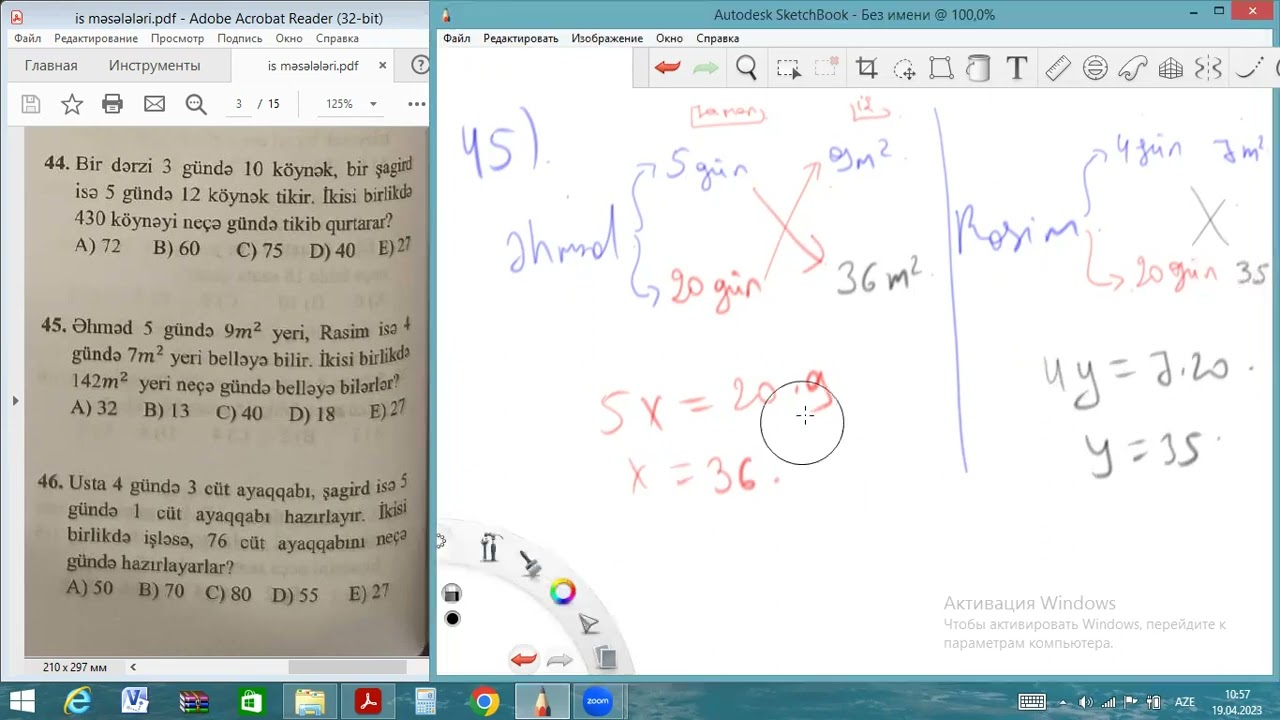 is məsələləri.pdf - Adobe Acrobat Reader (32-bit)
Файл Редактирование Просмотр Подпись Окно Справка
Главная Инструменты is məsələləri.pdf ×
3 / 15 125%
44. Bir dərzi 3 gündə 10 köynək, bir şagird
isə 5 gündə 12 köynək tikir. İkisi birlikdə
430 köynəyi neçə gündə tikib qurtarar?
A) 72 B) 60 C) 75 D) 40 E) 27
45. Əhməd 5 gündə 9m² yeri, Rasim isə 4
gündə 7m² yeri belləyə bilir. İkisi birlikdə
142m² yeri neçə gündə belləyə bilərlər?
A) 32 B) 13 C) 40 D) 18 E) 27
46. Usta 4 gündə 3 cüt ayaqqabı, şagird isə 5
gündə 1 cüt ayaqqabı hazırlayır. İkisi
birlikdə işləsə, 76 cüt ayaqqabını neçə
gündə hazırlayarlar?
A) 50 B) 70 C) 80 D) 55 E) 27
210 x 297 мм
Autodesk SketchBook - Без имени @ 100,0%
Файл Редактировать Изображение Окно Справка
45).
zaman iş
5 gün 9m²
Əhməd
20 gün 36 m²
5x = 20.9
x = 36.
4 gün 7m²
Rasim
20 gün 35
4y = 7.20.
y = 35.
Активация Windows
Чтобы активировать Windows, перейдите к
параметрам компьютера.
zoom
AZE
10:57
19.04.2023